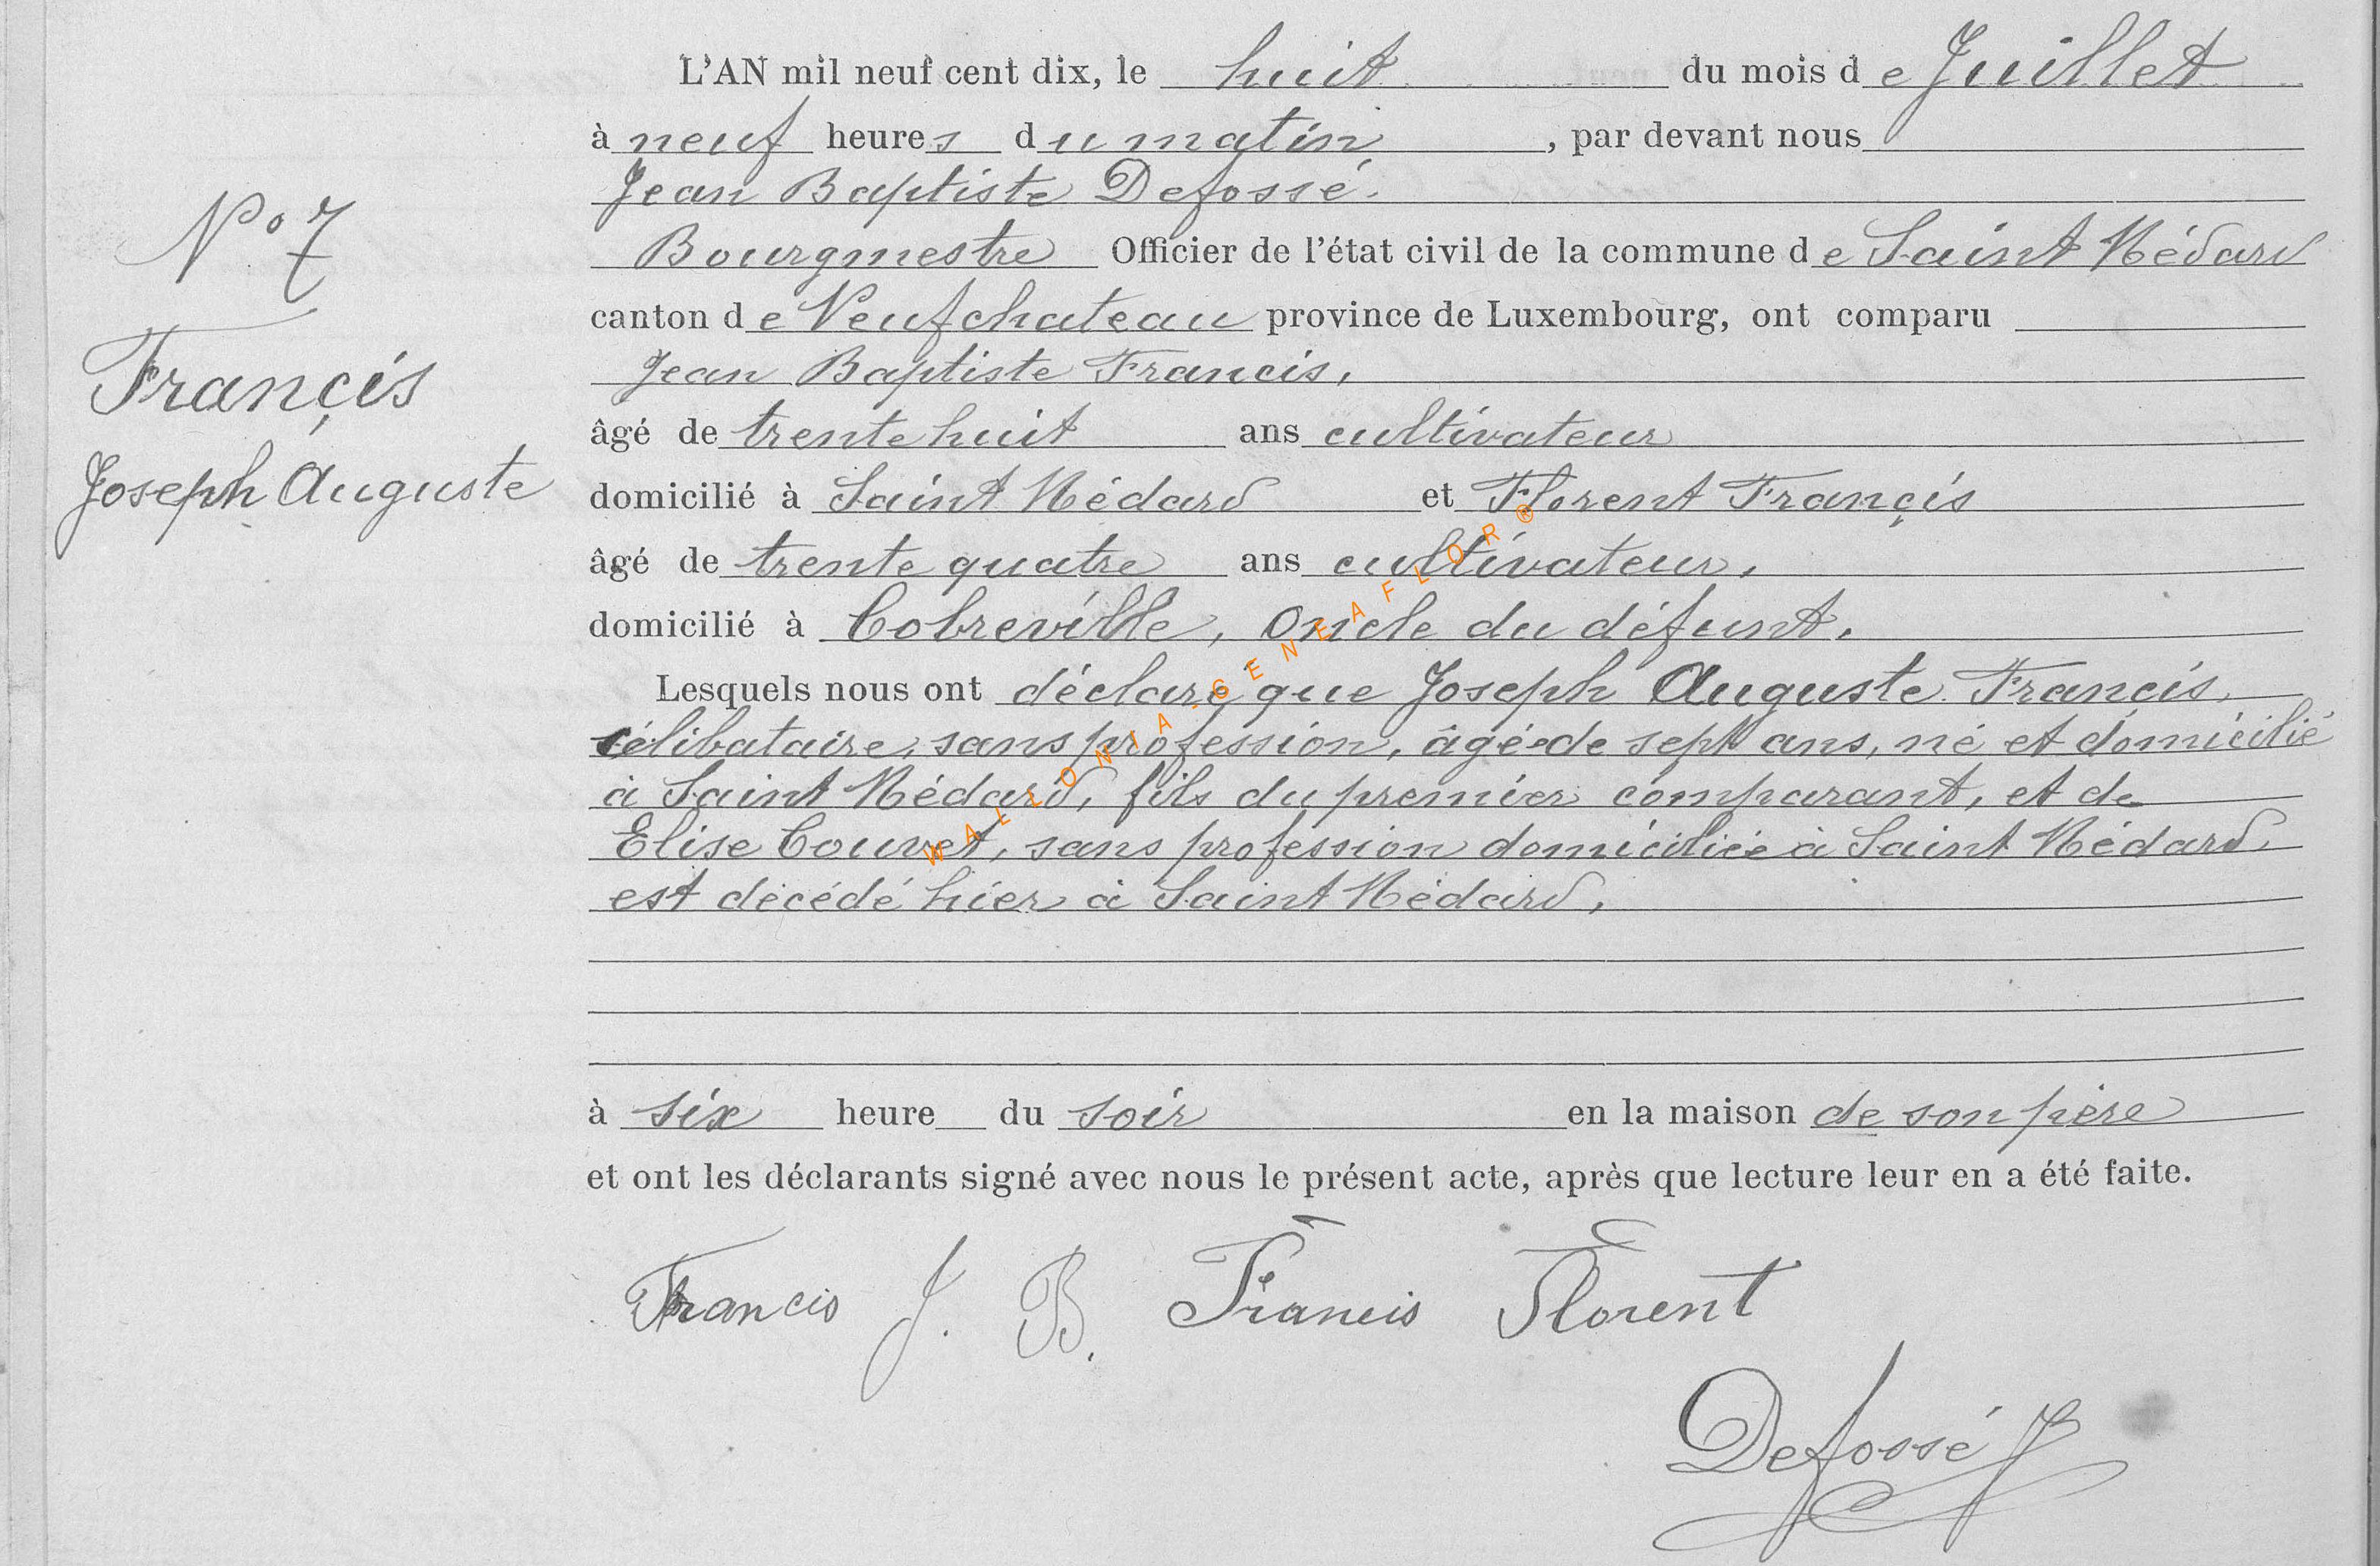 L'AN mil neuf cent dix, le huit du mois de Juillet
à neuf heures du matin, par devant nous
Jean Baptiste Defossé.
Bourgmestre Officier de l'état civil de la commune de Saint Médard
canton de Neufchateau province de Luxembourg, ont comparu
Jean Baptiste Francis,
âgé de trente huit ans cultivateur
domicilié à Saint Médard et Florent Françis
âgé de trente quatre ans cultivateur,
domicilié à Cobreville, Oncle du défunt.
Lesquels nous ont déclaré que Joseph Auguste Francis,
célibataire, sans profession, âgé de sept ans, né et domicilié
à Saint Médard, fils du premier comparant, et de
Elise Couvet, sans profession domiciliée à Saint Médard.
est décédé hier à Saint Médard,
à six heure du soir en la maison de son père
et ont les déclarants signé avec nous le présent acte, après que lecture leur en a été faite.
Francis J. B. Francis Florent
Defossé J
N° 7
Françis
Joseph Auguste
WALLONIA-GENEAFLOR®